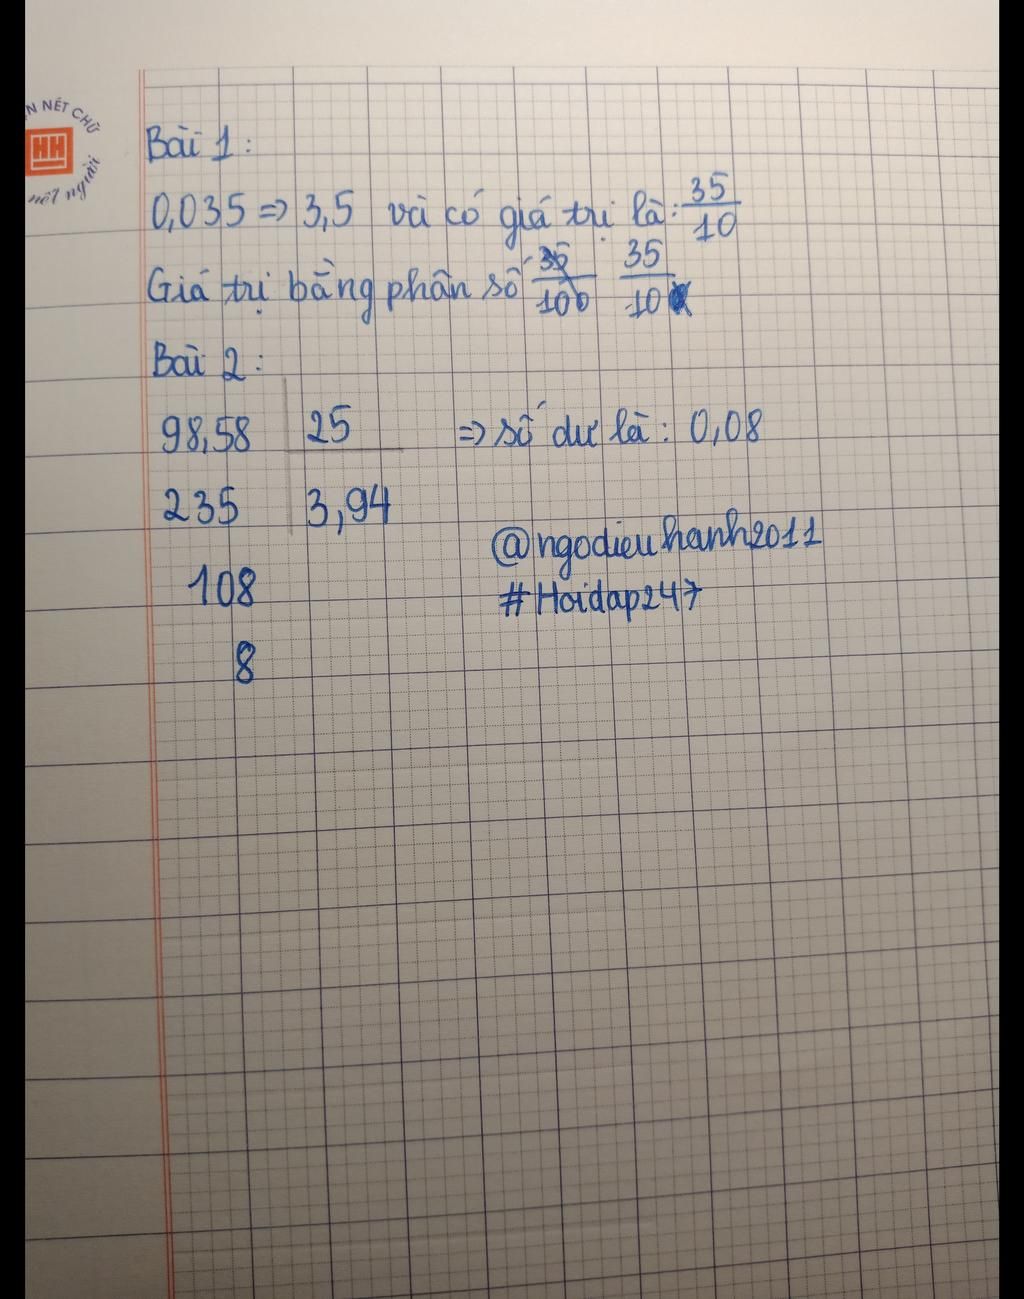 N NÉT CHỮ
HH
nết người
Bài 1:
0,035 => 3,5 và có giá trị là: 35/10
Giá trị bằng phân số 35/100 35/10
Bài 2:
98,58 25 => số dư là: 0,08
235 3,94
@ngodieuhanh2011
108
#Hoidap247
8